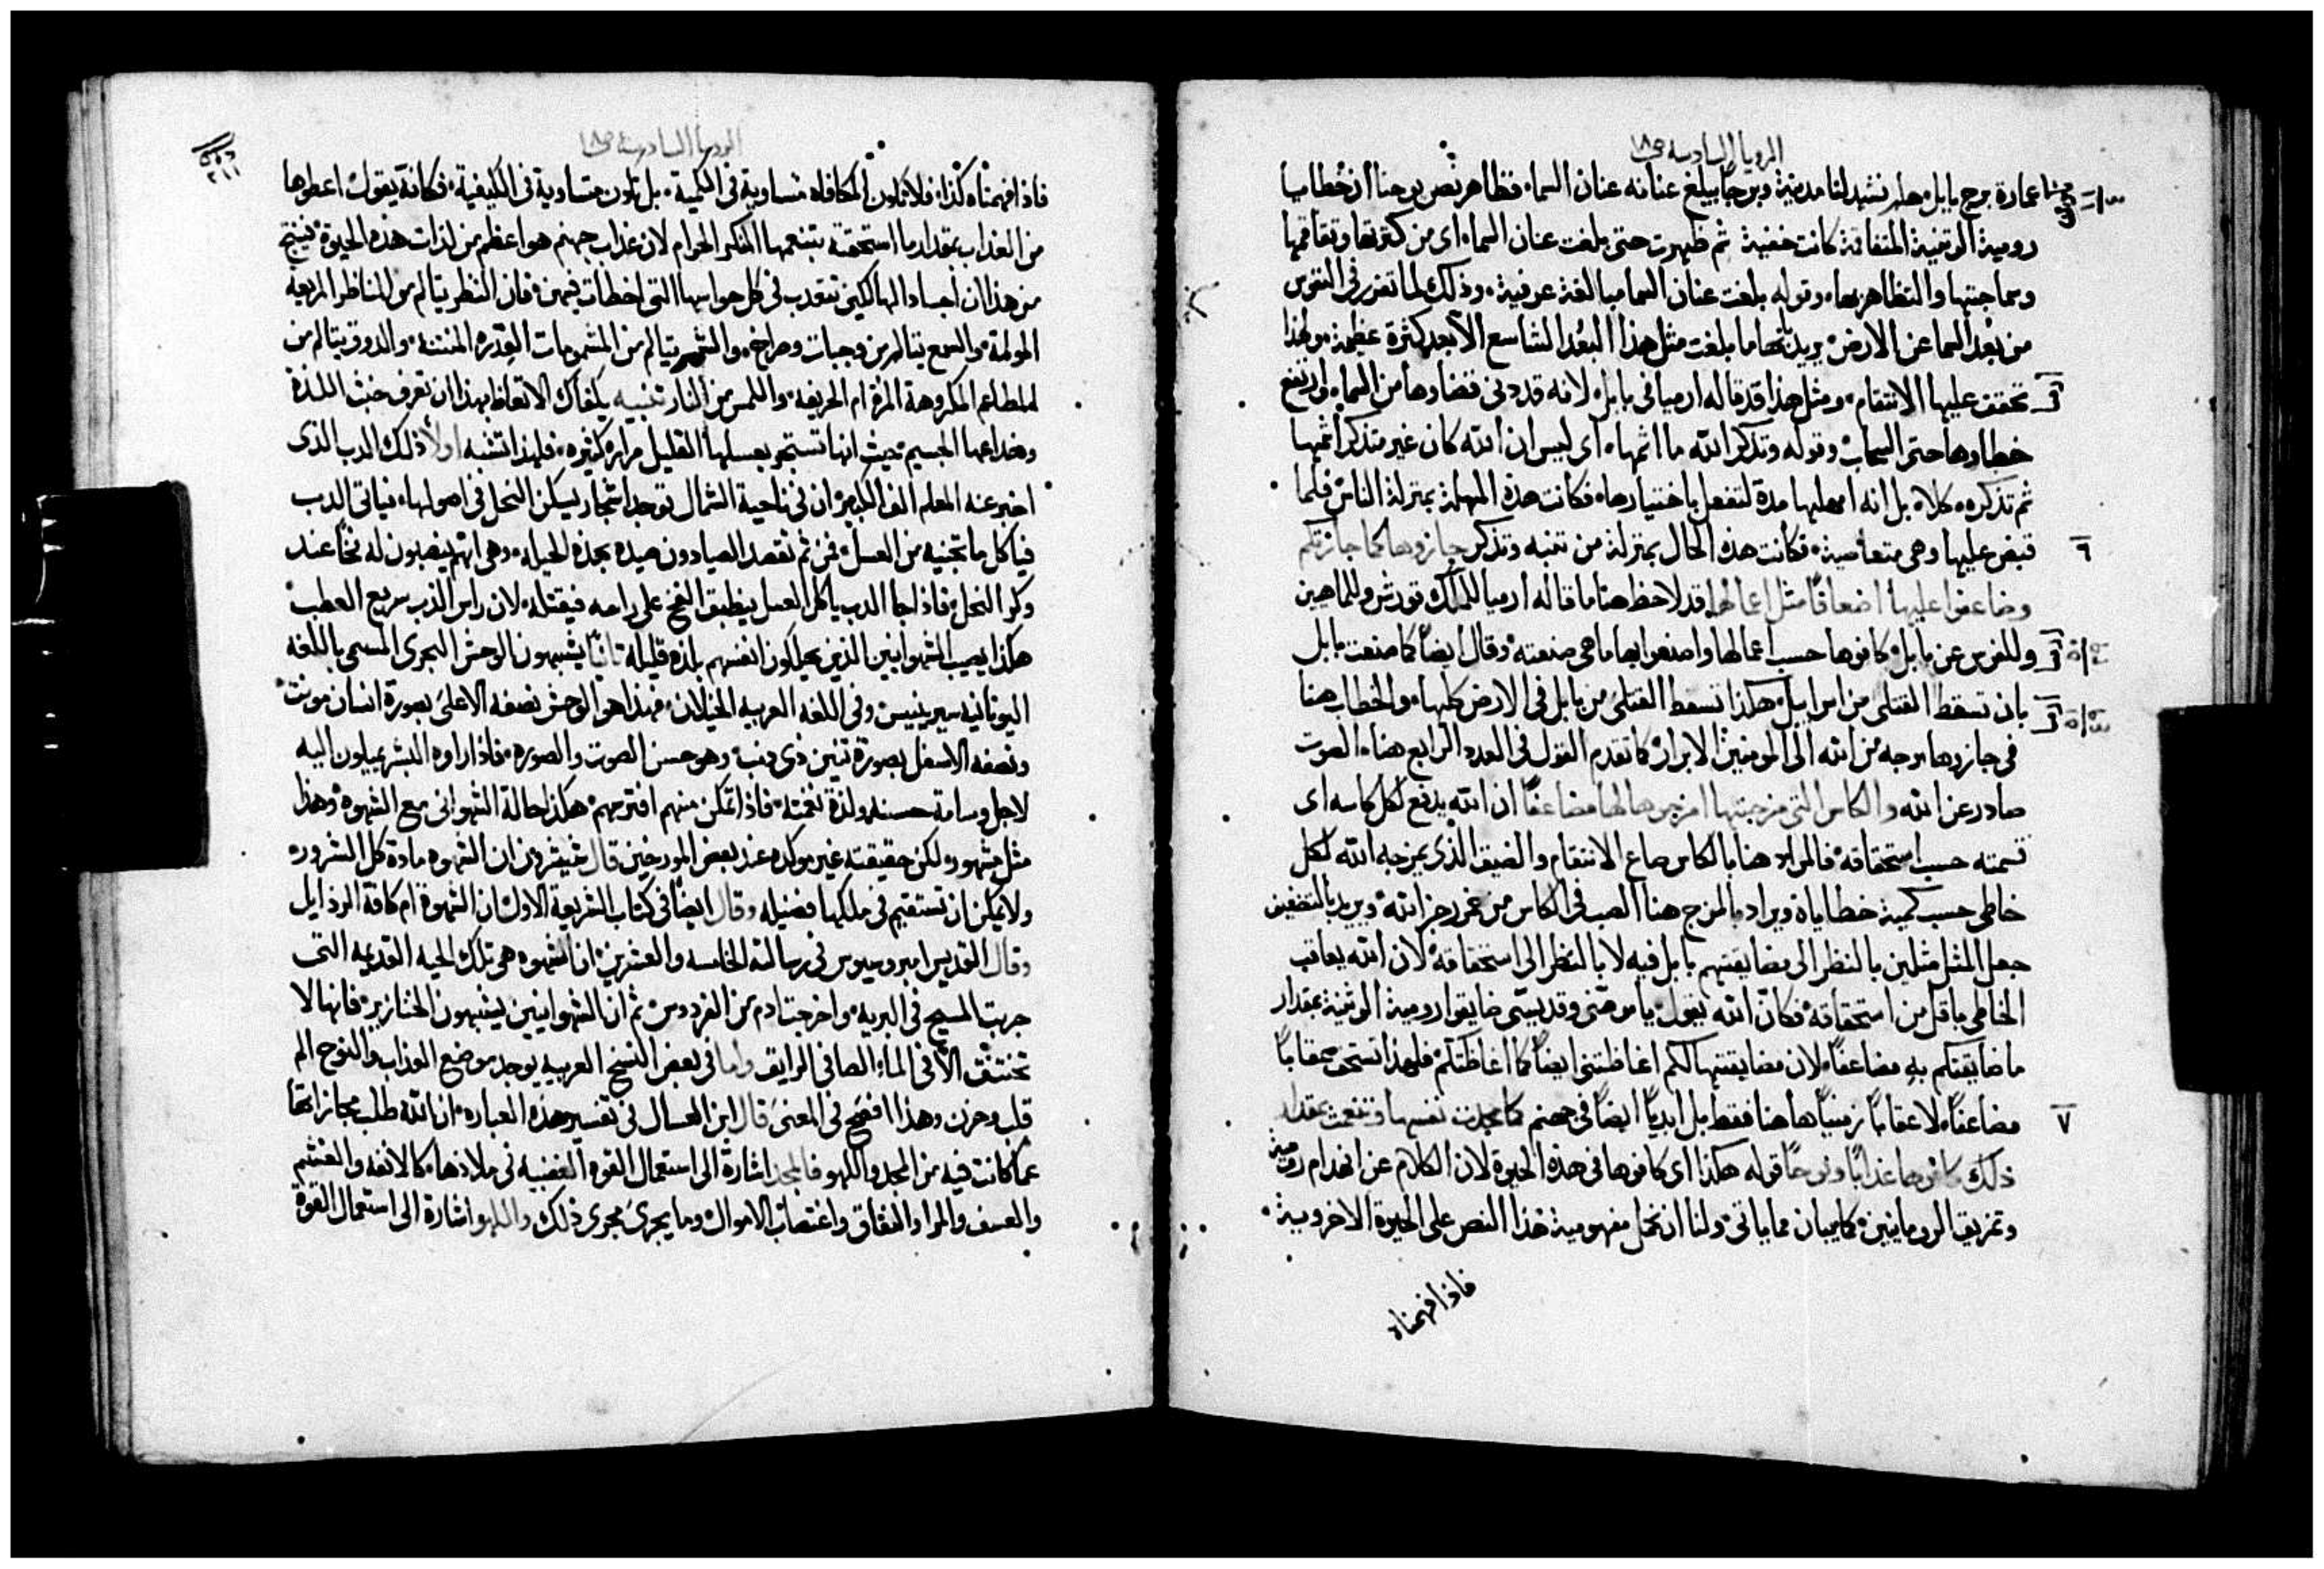 الرويا السادسة ص١٨
عمارة برج بابل هلم نشيد لنا مدينة وبرجا يبلغ عنانه عنان السماء فظاهر نص يوحنا ان خطايا
رومية الوثنية المتفاقمة كانت خفية ثم ظهرت حتى بلغت عنان السماء اى من كثرتها وتفاقمها
وسماجتها والتظاهر بها وقوله بلغت عنان السما مبالغة عرفية وذلك لما تقرر فى النفوس
من بعد السما عن الارض يريد بها ما بلغت مثل هذا البعد الشاسع الابعد كثرة عظيمة ولهذا
تحقق عليها الانتقام ومثل هذا قد قاله ارميا فى بابل لانه قد دنى قضاوها من السماء وارتفع
خطاوها حتى السحاب وقوله وتذكر الله ما اثمها اى ليس ان الله كان غير متذكر اثمها
ثم تذكره كلا بل انه امهلها مدة لتفعل باختيارها فكانت هذه المهلة بمنزلة الناس فلما
٦ قبض عليها وهى متعاصية فكانت هذه الحال بمنزلة من تنبه وتذكر جازوها كما جازتكم
وضاعفوا عليها اضعافا مثل اعمالها قد لاحظ هنا ما قاله ارميا للملك تورش وللماهيين
وللفرس عن بابل كافوها حسب اعمالها واصنعوا بها ما هى صنعته وقال ايضا كما صنعت بابل
بان تسقط القتلى من اسراييل هكذا تسقط القتلى من بابل فى الارض كلها والخطاب هنا
فى جازوها موجه من الله الى المومنين الابرار كما تقدم القول فى العدد الرابع هذا الصوت
صادر عن الله والكاس التى مزجتها امزجوها لها مضاعفا ان الله يدفع لكل كاسه اى
قسمته حسب استحقاقه فالمراد هنا بالكاس صاع الانتقام والضيق الذى يمزجه الله لكل
خاطى حسب كمية خطاياه ويراد بالمزج هنا الصب فى الكاس من خمر رجز الله ويريد بالتضعيف
جعل المثل مثلين بالنظر الى مضايقتهم بابل فيه لا بالنظر الى استحقاقه لان الله يعاقب
الخاطى باقل من استحقاقه فكان الله يقول يا مومنى وقديسى ضايقوا رومية الوثنية بمقدار
ما ضايقتكم به مضاعفا لان مضايقتها لكم اغاظتنى ايضا كما اغاظتكم فلهذا تستحق عقابا
٧ مضاعفا لا عقابا زمنيا هاهنا فقط بل ابديا ايضا فى جهنم كما مجدت نفسها وتنعمت بمقدار
ذلك كافوها عذابا ونوحا قوله هكذا اى كافوها فى هذه الحيوة لان الكلام عن انهدام رومية
وتمزيق الرومانيين كما يبان مما ياتى ولنا ان نحمل مفهومية هذا النص على الحيوة الاخروية
فاذا فهمناه
الرويا السادسة ص١٨
فاذا فهمناه كذا فلا تكون المكافاه متساوية فى الكمية بل تكون متساوية فى الكيفية فكانه يقول اعطوها
من العذاب بمقدار ما استحقته بتنعمها المنكر الحرام لان عذاب جهنم هو اعظم من لذات هذه الحيوة فينتج
من هذا ان اجساد الهالكين تتعذب فى كل حواسها التى اخطات بهن فان النظر يتالم من المناظر المريعه
المولمة والسمع يتالم من وجبات وصراخ والشم يتالم من المشمومات القذره المنتنة والذوق يتالم من
المطاعم المكروهة المرة الحريفة واللمس من النار تنبيه يكفاك الاتعاظ بهذا ان تعرف خبث اللذة
وخداعها الجسيم حيث انها تستجر بعسلها القليل مراره كثيره فلهذا تشبه اولا ذلك الدب الذى
اخبر عنه المعلم الف الكبير ان فى ناحية الشمال توجد اشجار يسكن النحل فى اصولها فياتى الدب
فياكل ما تجنيه من العسل فمن ثم تقصد الصيادون صيده بهذه الحيله وهى انهم ينصبون له فخا عند
وكر النحل فاذا جا الدب ياكل العسل ينطبق الفخ على راسه فيقتله لان راس الدب سريع العطب
هكذا يصيب الشهوانيين الذين يهلكون انفسهم بلذه قليله ثانيا يشبهون الوحش البحرى المسمى باللغه
اليونانيه سيرينيس وفى اللغه العربيه الخيلان فهذا هو الوحش نصفه الاعلى بصورة انسان مونث
ونصفه الاسفل بصورة تنين ذى ذنب وهو حسن الصوت والصوره فاذا راوه البشر يميلون اليه
لاجل وسامة حسنه ولذة نغمته فاذا تمكن منهم افترسهم هكذا حالة الشهوانى مع الشهوة وهذا
مثل مشهور لكن حقيقته غير موكده عند بعض المورخين قال شيشرون ان الشهوه مادة كل الشرور
ولا يمكن ان تستقيم فى ملكها فضيله وقال ايضا فى كتاب الشريعة الاول ان الشهوة ام كافة الرذايل
وقال القديس امبروسيوس فى رسالته الخامسه والعشرين ان الشهوه هى تلك الحيه القديمه التى
جربت المسيح فى البريه واخرجت ادم من الفردوس ثم ان الشهوانيين يشبهون الخنازير فانها لا
تختنق الا فى الماء الصافى الرايق واما فى بعض النسخ العربيه يوجد موضع العذاب والنوح الم
قلب وحزن وهذا افصح فى المعنى قال ابن العسال فى تفسير هذه العباره ان الله طلب مجازاتها
عما كانت فيه من المجد واللهو فالمجد اشارة الى استعمال القوه الغضبيه فى ملاذها كالانفه والغشم
والعسف والمرا والنفاق واغتصاب الاموال وما يجرى مجرى ذلك واللهو اشارة الى استعمال القوة